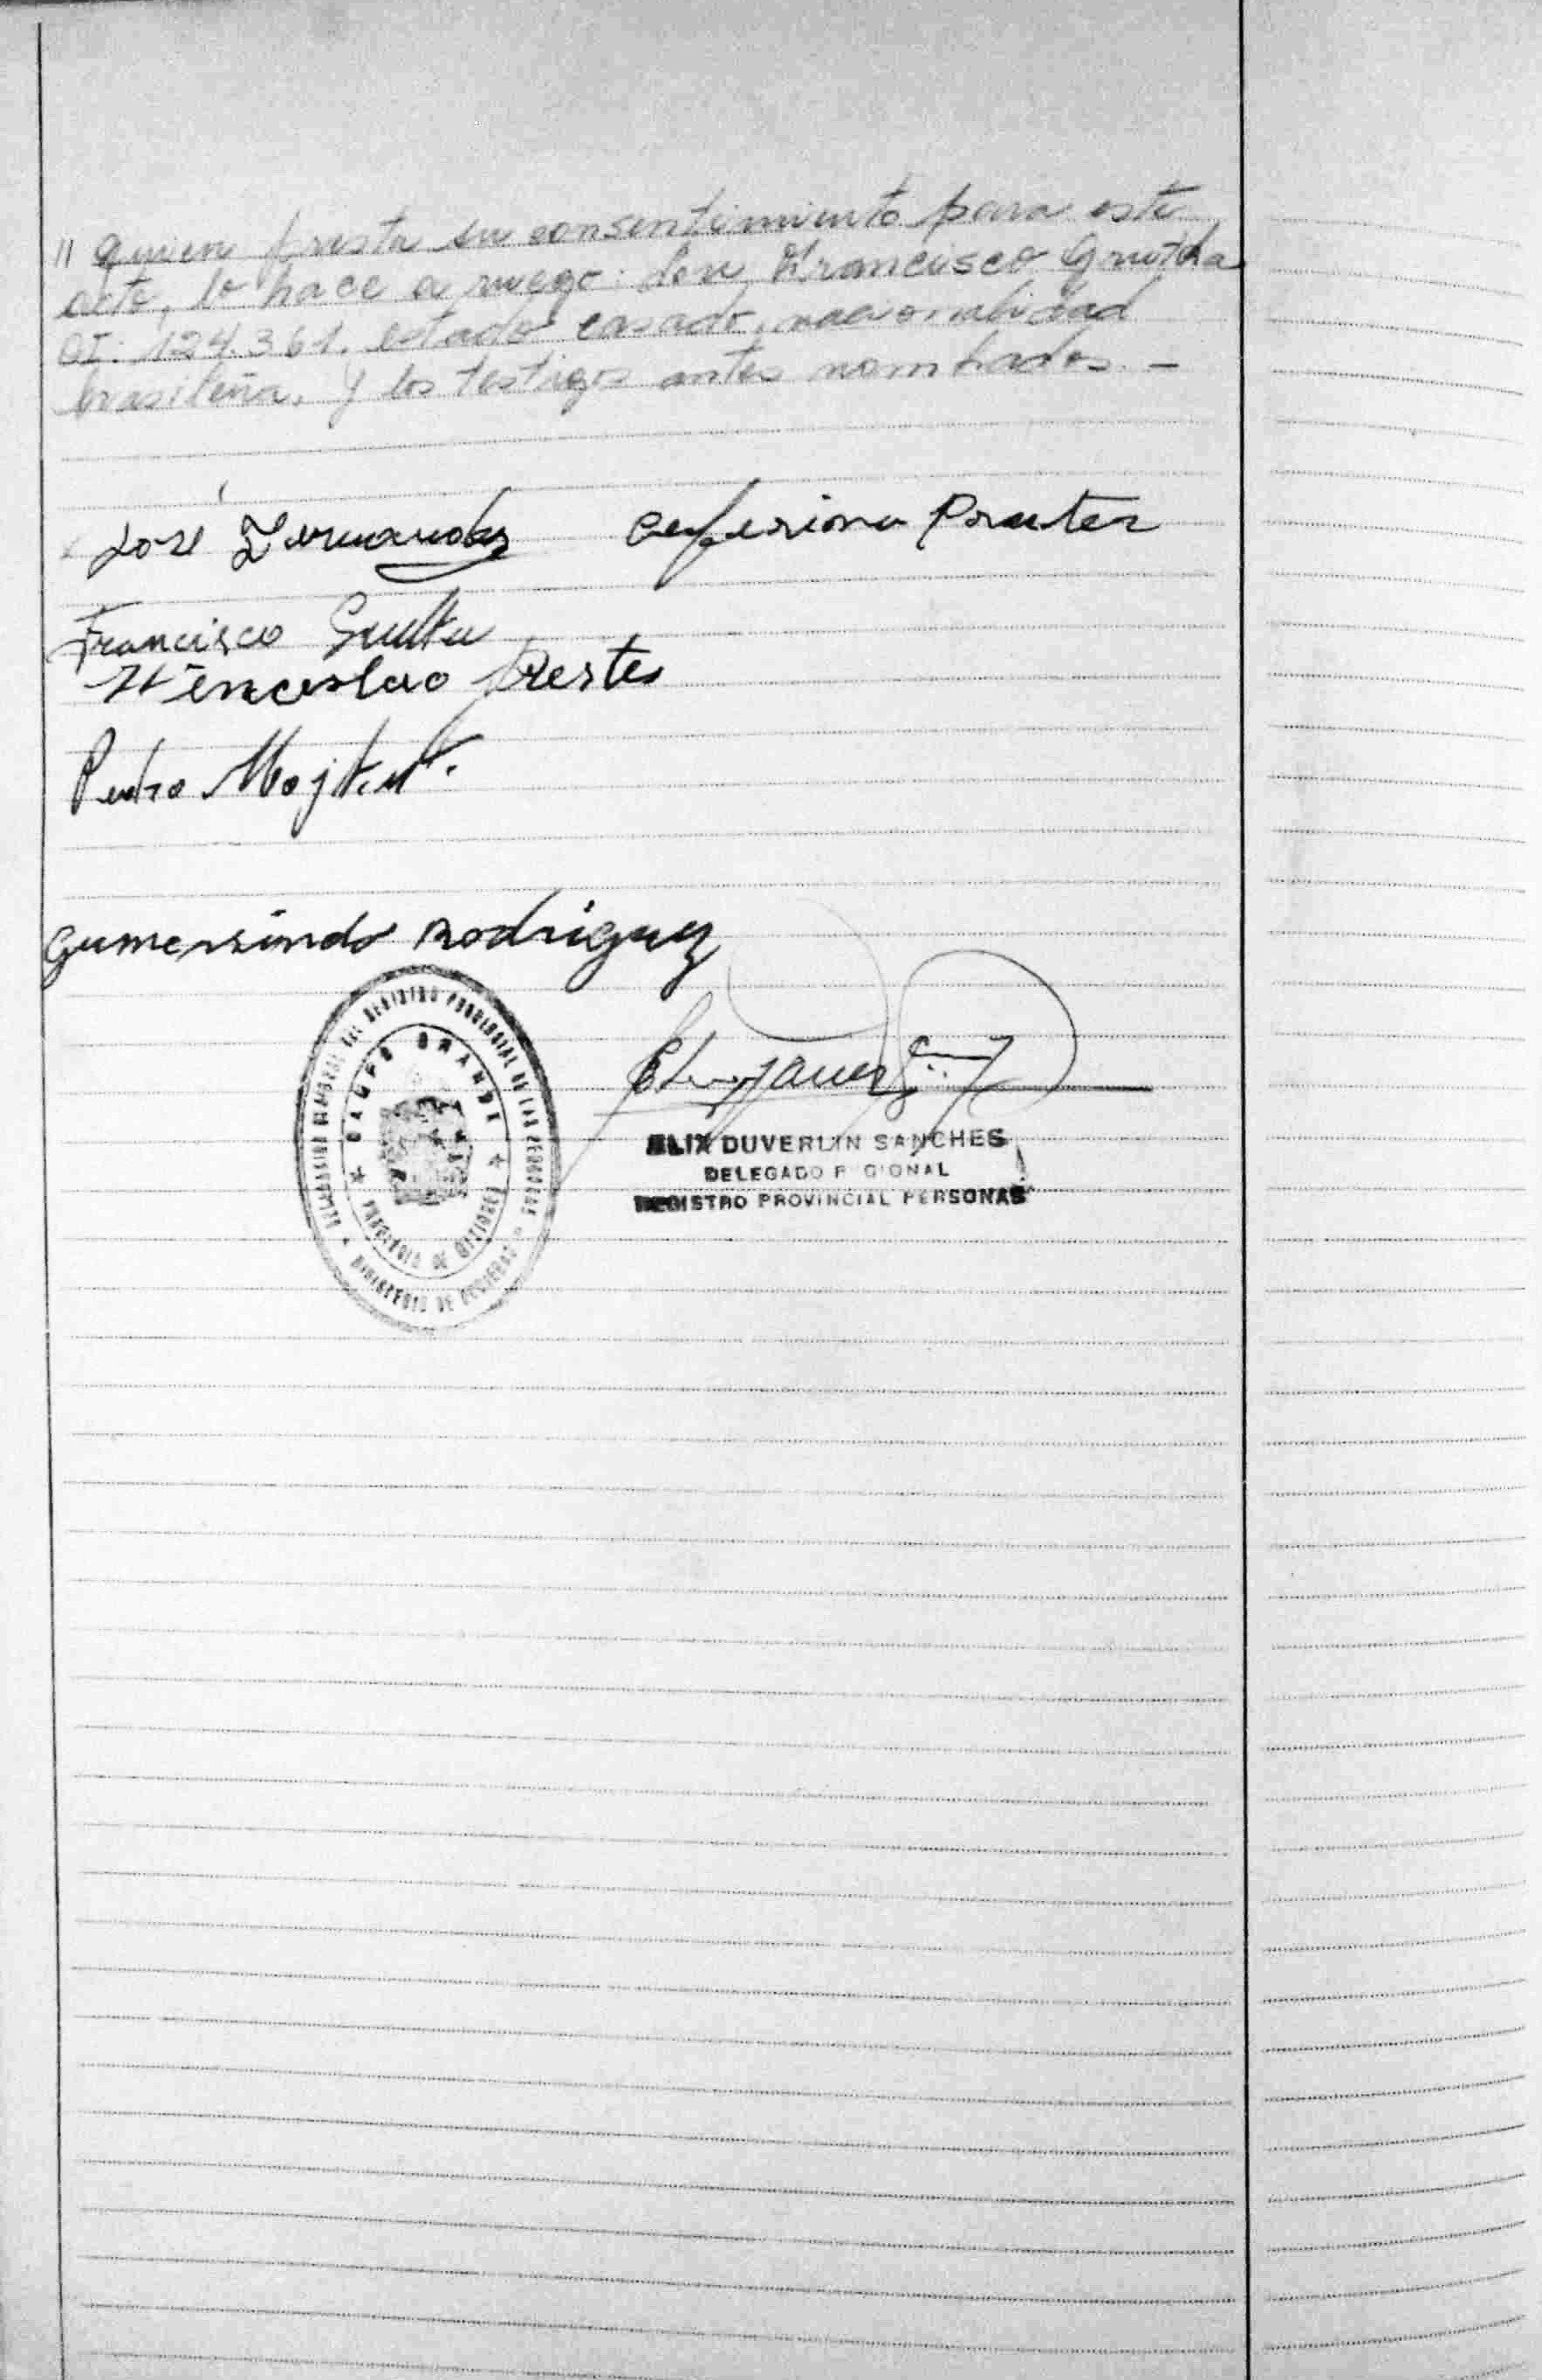 " quien presta su consentimiento para este
acto, lo hace a ruego: don Francisco
CI. 124.361. estado casado, nacionalidad
brasileña, y los testigos antes nombrados. -
José Fernandez Ceferiona
Francisco
Wenceslao Prestes
Pedro
Gumersindo Rodriguez
DELEGACION REGIONAL DEL REGISTRO PROVINCIAL DE LAS PERSONAS
CAMPO GRANDE
PROVINCIA DE MISIONES
MINISTERIO DE GOBIERNO
ELIX DUVERLIN SANCHES
DELEGADO REGIONAL
REGISTRO PROVINCIAL PERSONAS